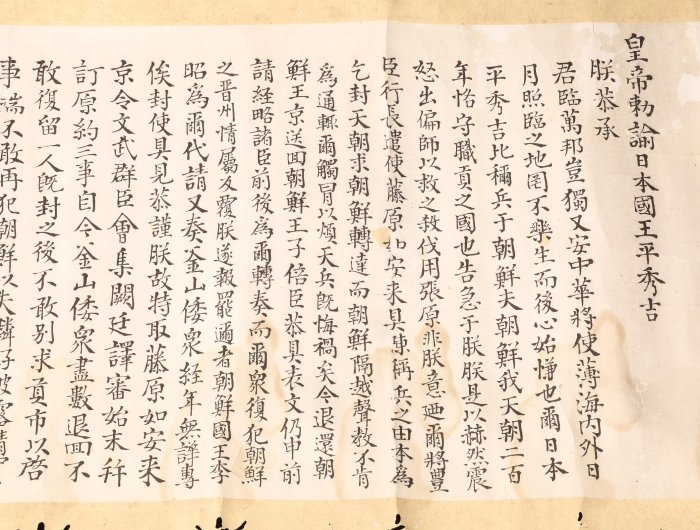 皇帝勅諭日本國王平秀吉
朕恭承
君臨萬邦豈獨乂安中華將使薄海內外日
月照臨之地罔不樂生而後心始慊也爾日本
平秀吉比稱兵于朝鮮夫朝鮮我天朝二百
年恪守職貢之國也告急于朕朕是以赫然震
怒出偏師以救之殺伐用張原非朕意廼爾將豐
臣行長遣使藤原如安来具陳稱兵之由本為
乞封天朝求朝鮮轉達而朝鮮隔越聲教不肯
為通輙爾觸冒以煩天兵既悔禍矣今退還朝
鮮王京送回朝鮮王子陪臣恭具表文仍申前
請経略諸臣前後為爾轉奏而爾衆復犯朝鮮
之晋州情屬反覆朕遂報罷邇者朝鮮國王李
昭為爾代請又奏釜山倭衆経年無譁專
俟封使具見恭謹朕故特取藤原如安来
京令文武群臣會集闕廷譯審始末并
訂原約三事自今釜山倭衆盡數退回不
敢復留一人既封之後不敢别求貢市以啓
事端不敢再犯朝鮮以失隣好